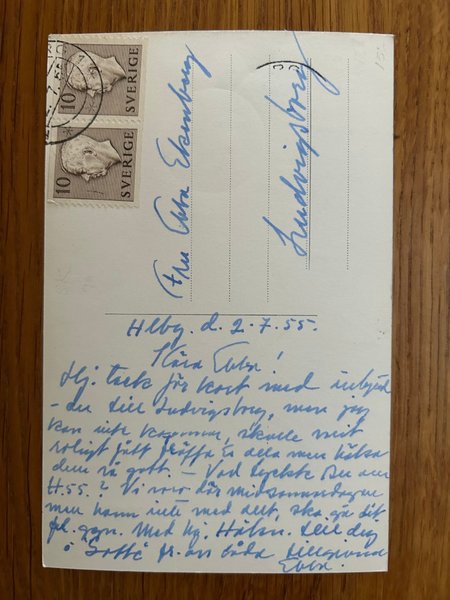 SVERIGE
10
SVERIGE
10
Fru Ebba Ekenberg
Ludvigsborg
Hlbg. d. 2.7.55.
Kära Ebba!
Hj. tack för kort med inbjud
- du till Ludvigsborg, men jag
kan inte komma, skulle
roligt fått träffa Er alla men hälsa
dem så gott. - Vad tyckte Du om
H.55.? Vi voro där midsommardagen
men hann inte med allt, ska gå dit
fl. ggr. Med hj. Hälsn. till dig
o fr. oss båda tillgivna
Ebba.